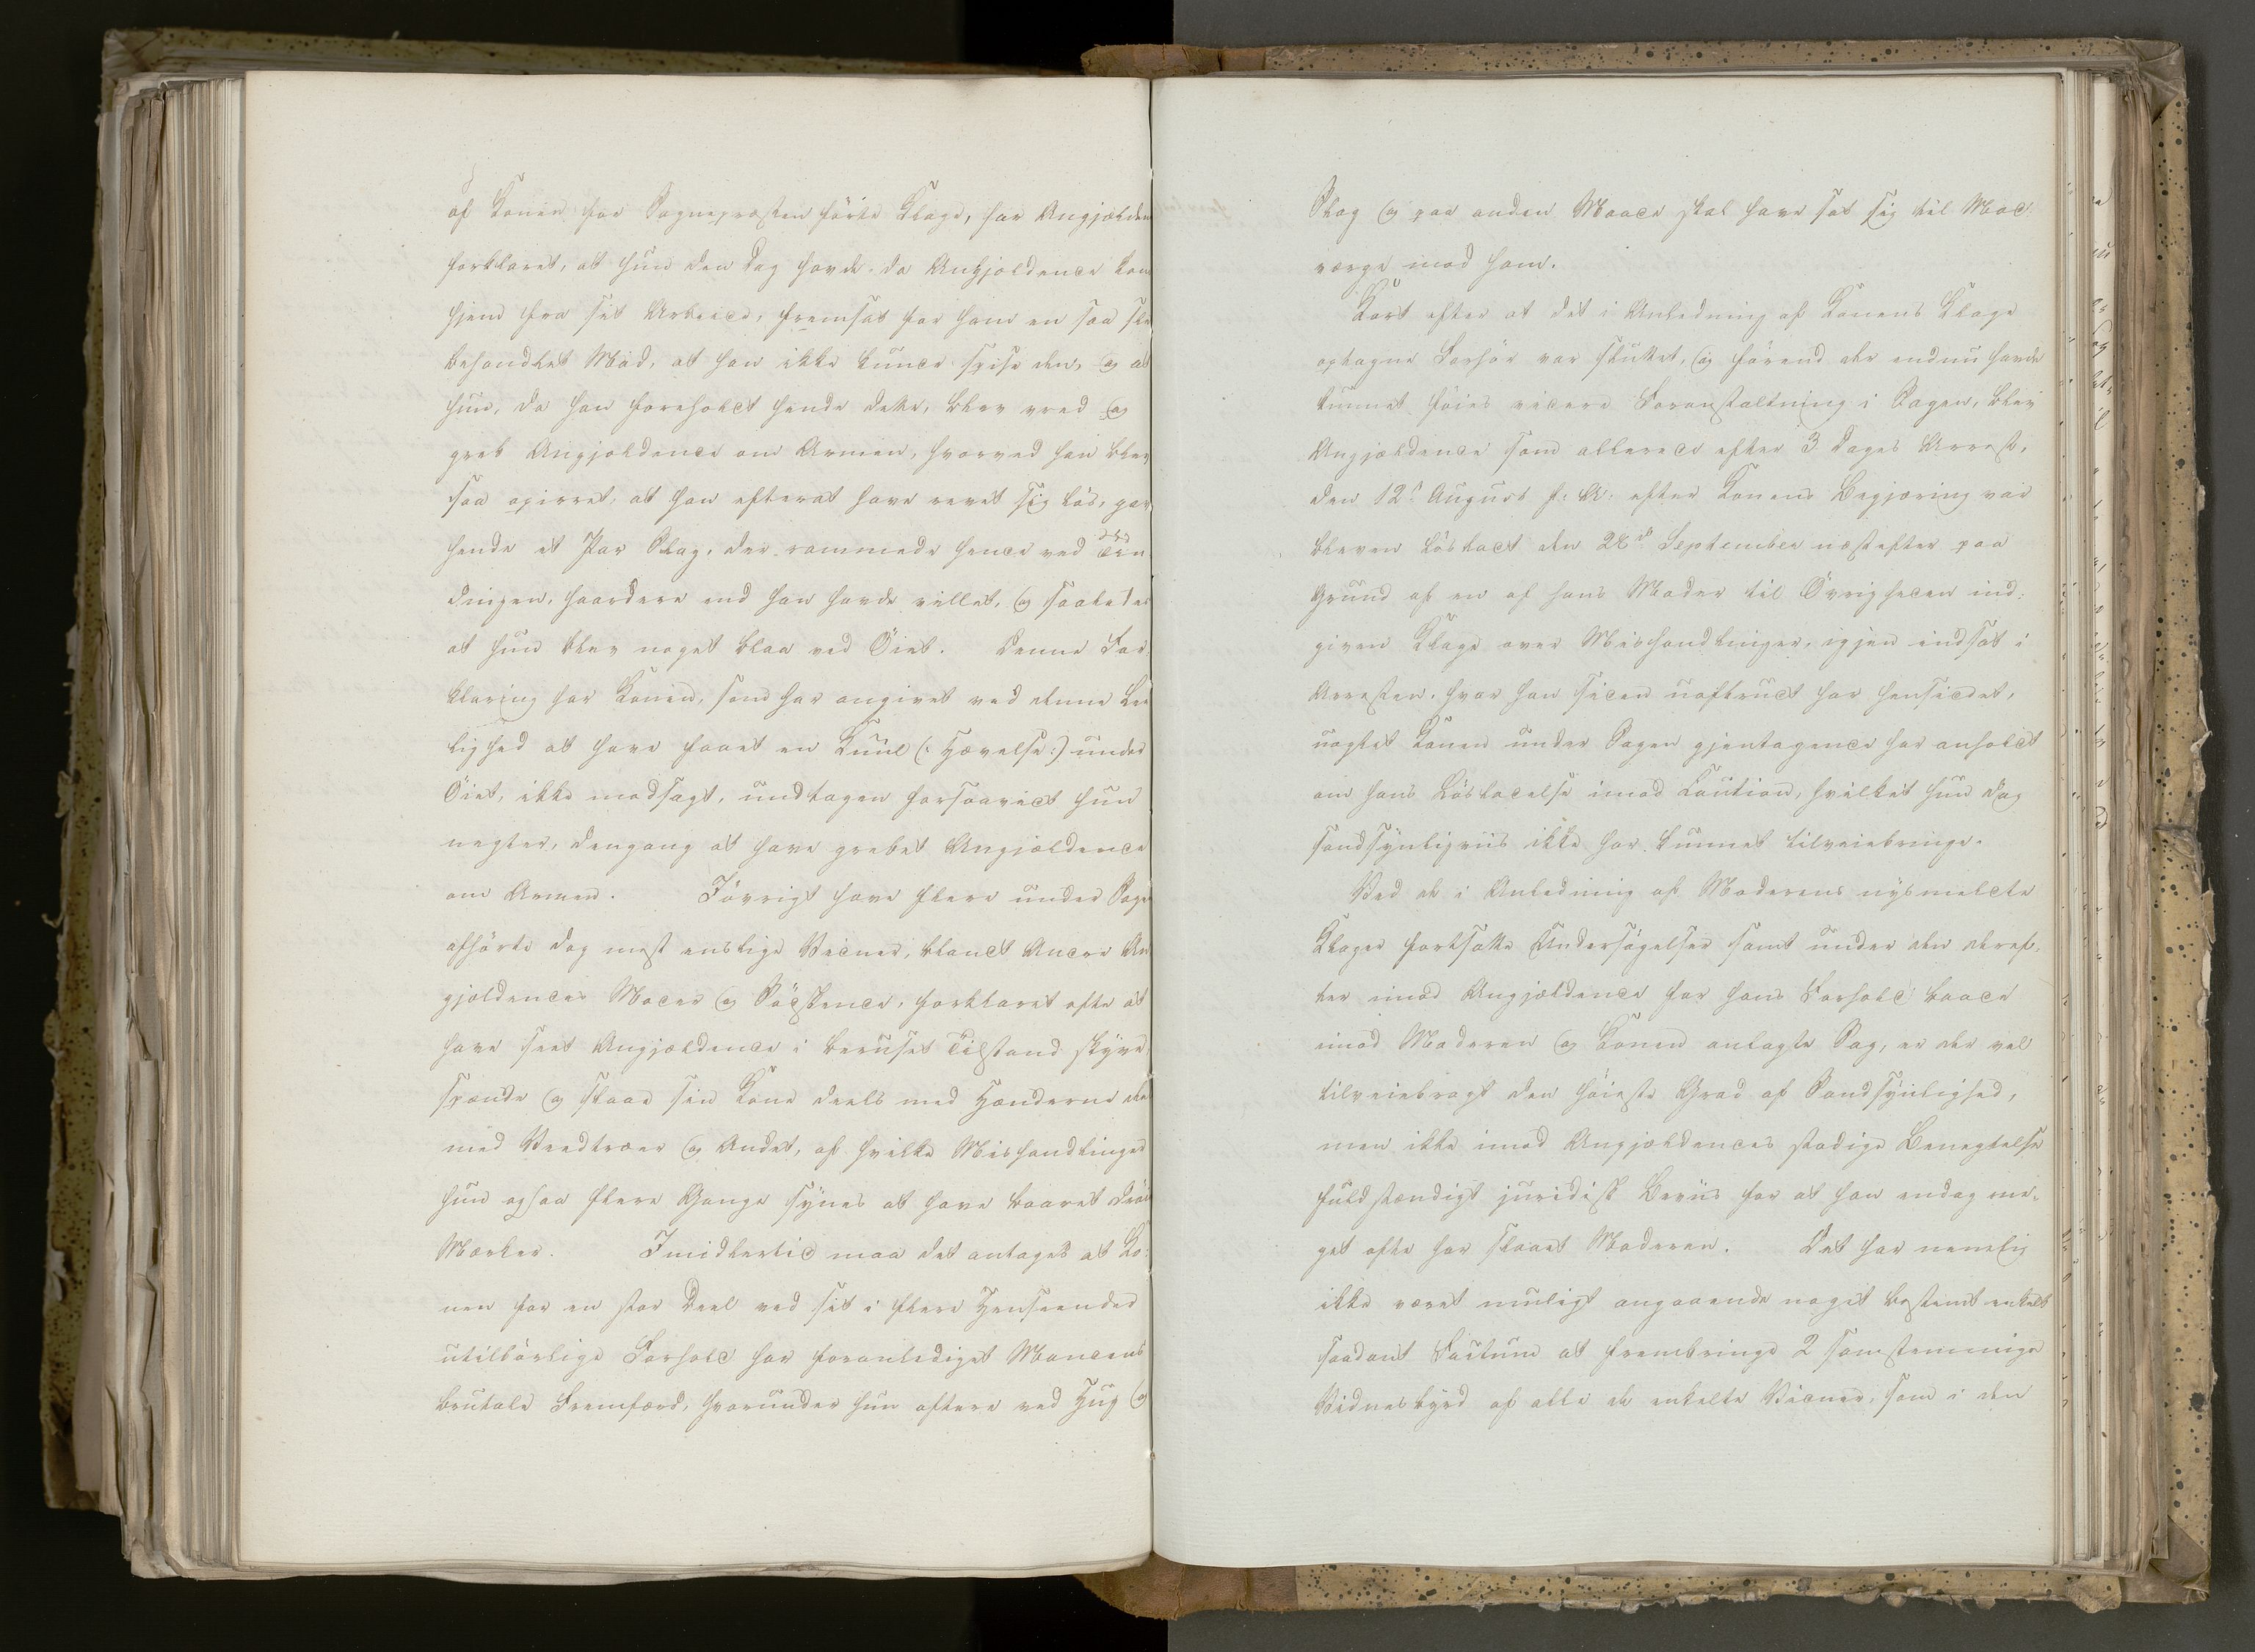 af Konen for Sognepræsten förte Klage, har Angjælden
forklaret, at hun den Dag havde, da Angjældende kom
hjem fra sit Arbeide, fremsat for ham en saa sle
behandlet Mad, at han ikke kunde spise den, og at
hun, da han foreholdt hende dette, blev vred og
greb Angjældende om Armen, hvorved han blev
saa opirret, at han efterat have revet sig lös, gav
hende et Par Slag, der rammede hende ved Tin
dingen, haardere end han havde villet, og saaledes
at hun blev noget blaa ved Öiet. Denne For¬
klaring har Konen, som har angivet ved denne Lei
lighed at have faaet en Kuul (: Hævelse:) under
Öiet, ikke modsagt, undtagen forsaavidt hun
negter, dengang at have grebet Angjældende
om Armen. Iövrigt have flere under Sage
afhörte dog mest enslige Vidner, blandt Andre An
gjældendes Moder og Södskende, forklaret ofte at
have seet Angjældende i beruset Tilstand skyve,
spænde og slaae sin Kone deels med Hænderne dee
med Veedtræer og Andet, af hvilke Mishandlinger
hun ogsaa flere Gange synes at have baaret
Mærker. Imidlertid maa det antages at Ko¬
nen for en stor Deel ved sit i flere Henseender
utilbörlige Forhold har foranlediget Mandens
brutale Fremfærd, hvorunder hun oftere ved Hug og
Slag og paa anden Maade skal have sat sig til Mod¬
værge mod ham.
Kort efter at det i Anledning af Konens Klage
optagne Forhör var sluttet, og förend der endnu havde
kunnet föies videre Foranstaltning i Sagen, blev
Angjældende som allerede efter 3 Dages Arrest,
den 12te August f: A: efter Konens Begjæring var
bleven lösladt den 28de September næstefter paa
Grund af en af hans Moder til Övrigheden ind¬
given Klage over Mishandlinger, igjen indsat i
Arresten, hvor han siden uafbrudt har hensiddet,
uagtet Konen under Sagen gjentagende har anholdt
om hans Lösladelse imod Caution, hvilket hun dog
sandsynligviis ikke har kunnet tilveiebringe.
Ved de i Anledning af Moderens nysmeldte
Klager fortsatte Undersögelser samt under den deref¬
ter imod Angjældende for hans Forhold baade
imod Moderen og Konen anlagte Sag, er der vel
tilveiebragt den höieste Grad af Sandsynlighed,
men ikke imod Angjældendes stadige Benegtelse
fuldstændigt juridisk Beviis for at han endog me¬
get ofte har slaaet Moderen. Det har nemlig
ikke været muligt angaaende noget bestemt enkelt
saadant Factum at frembringe 2 samstemmige
Vidnesbyrd af alle de enkelte Vidner, som i den